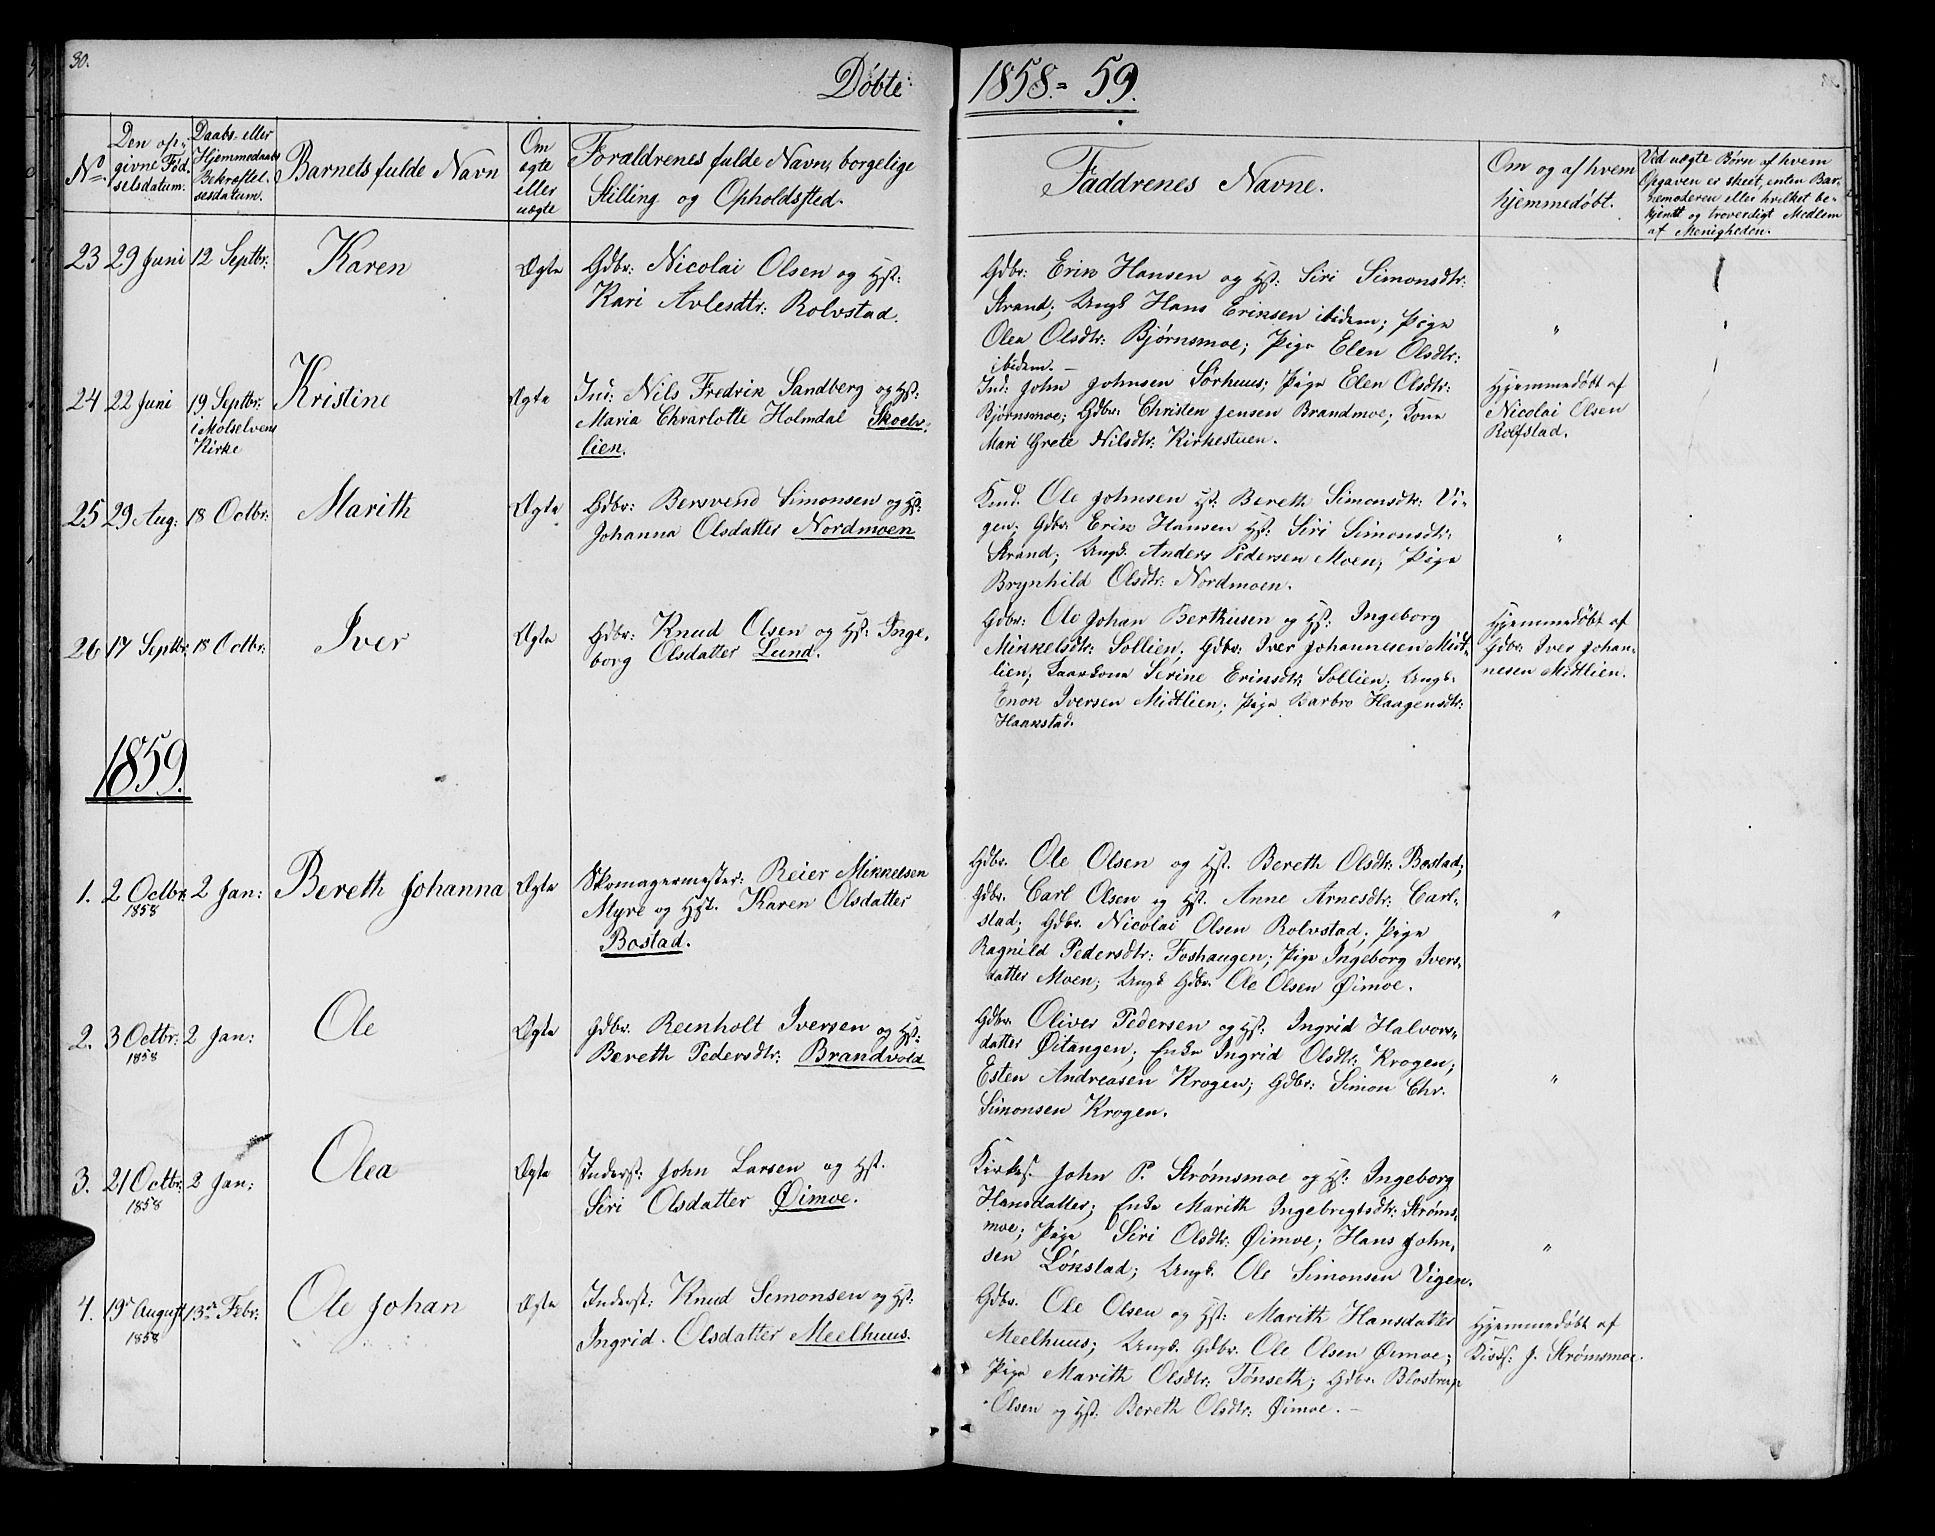 30.
Døbte
1858 = 59.
No.
Den op-
givne Fød-
selsdatum.
Daabs- eller
Hjemmedaabs
Bekræftel-
sesdatum.
Barnets fulde Navn
Om
ægte
eller
uægte
Forældrenes fulde Navn, borgelige
Stilling og Opholdssted.
Faddrenes Navne.
Om og af hvem
hjemmedøbt.
Ved uægte Børn af hvem
Opgaven er skeet, enten Bar-
nemoderen eller hvilket be-
kjendt og troværdigt Medlem
af Menigheden.
23 29 Juni 12 Septbr: Karen Ægte
Gdbr: Nicolai Olsen og Hst:
Kari Avlesdtr: Rolvstad.
Gdbr: Erik Hansen og Hst: Siri Simonsdtr:
Strand; Ungk Hans Eriksen ibidem; Pige
Olea Olsdtr: Bjørnsmoe; Pige Elen Olsdtr:
ibidem. —
"
24 22 Juni 19 Septbr:
i Målselvens
Kirke
Kristine Ægte
Ind: Nils Fredrik Sandberg og Hst:
Maria Chrarlotte Holmdal Skoelv-
lien.
Ind: John Johnsen Sørhuus; Pige Elen Olsdtr:
Bjørnsmoe; Gdbr: Christen Jensen Brandmoe; Kone
Mari Grete Nilsdtr: Kirkestuen.
Hjemmedøbt af
Nicolai Olsen
Rolfstad.
25 29 Aug: 18 Octbr: Marith Ægte
Gdbr: Bersvend Simonsen og Hst:
Johanna Olsdatter Nordmoen
Ole Johnsen Hst: Bereth Simonsdtr: Vi-
gen; Gdbr: Erik Hansen Hst: Siri Simonsdtr:
Strand; Ungk. Anders Pedersen Moen; Pige
Brynhild Olsdtr: Nordmoen.
"
26 17 Septbr: 18 Octbr: Iver Ægte
Gdbr: Knud Olsen og Hst: Inge-
borg Olsdatter Lund.
Gdbr: Ole Johan Berthusen og Hst: Ingeborg
Mikkelsdtr: Sollien; Gdbr: Iver Johannesen Midt-
lien; Serine Eriksdtr: Sollien; Ungk.
Enok Iversen Midtlien; Pige Barbro Haagensdtr:
Haakstad.
Hjemmedøbt af
Gdbr: Iver Johan-
nesen Midtlien.
1859.
1. 2 Octbr: 1858 2 Jan: Bereth Johanna Ægte
Skomagermester: Reier Mikkelsen
Myre og Hst. Karen Olsdatter
Bostad.
Gdbr. Ole Olsen og Hst. Bereth Olsdtr: Bostad;
Gdbr. Carl Olsen og Hst. Anne Arnesdtr: Carl-
stad; Gdbr. Nicolai Olsen Rolvstad; Pige
Ragnild Pedersdtr: Foshaugen; Pige Ingeborg Ivers-
datter Moen; Ungk Gdbr. Ole Olsen Øimoe.
"
2. 3 Octbr: 1858 2 Jan: Ole Ægte
Gdbr. Reinholt Iversen og Hst:
Bereth Pedersdtr: Brandvold
Gdbr. Oliver Pedersen og Hst: Ingrid Halvors-
datter Øitangen; Enke Ingrid Olsdtr: Krogen;
Esten Andreasen Krogen; Gdbr: Simon Chr.
Simonsen Krogen.
"
3. 21 Octbr: 1858 2 Jan: Olea Ægte
Inderst: John Larsen og Hst.
Siri Olsdatter Øimoe.
Kirkes. John P. Strømsmoe og Hst: Ingeborg
Hansdatter; Enke Marith Ingebrigtsdtr: Strøms-
moe; Pige Siri Olsdtr: Øimoe; Hans John-
sen Lønstad; Ungk. Ole Simonsen Vigen.
"
4. 19de August 1858 13de Febr: Ole Johan Ægte
Inderst: Knud Semonsen og Hst:
Ingrid Olsdatter Meelhuus.
Gdbr. Ole Olsen og Hst: Marith Hansdatter
Meelhuus; Ungk. Gdbr. Ole Olsen Øimoe;
Pige Marith Olsdtr: Tønseth; Gdbr. Blostrup
Olsen og Hst: Bereth Olsdtr: Øimoe. —
Hjemmedøbt af
J. Strømsmoe.